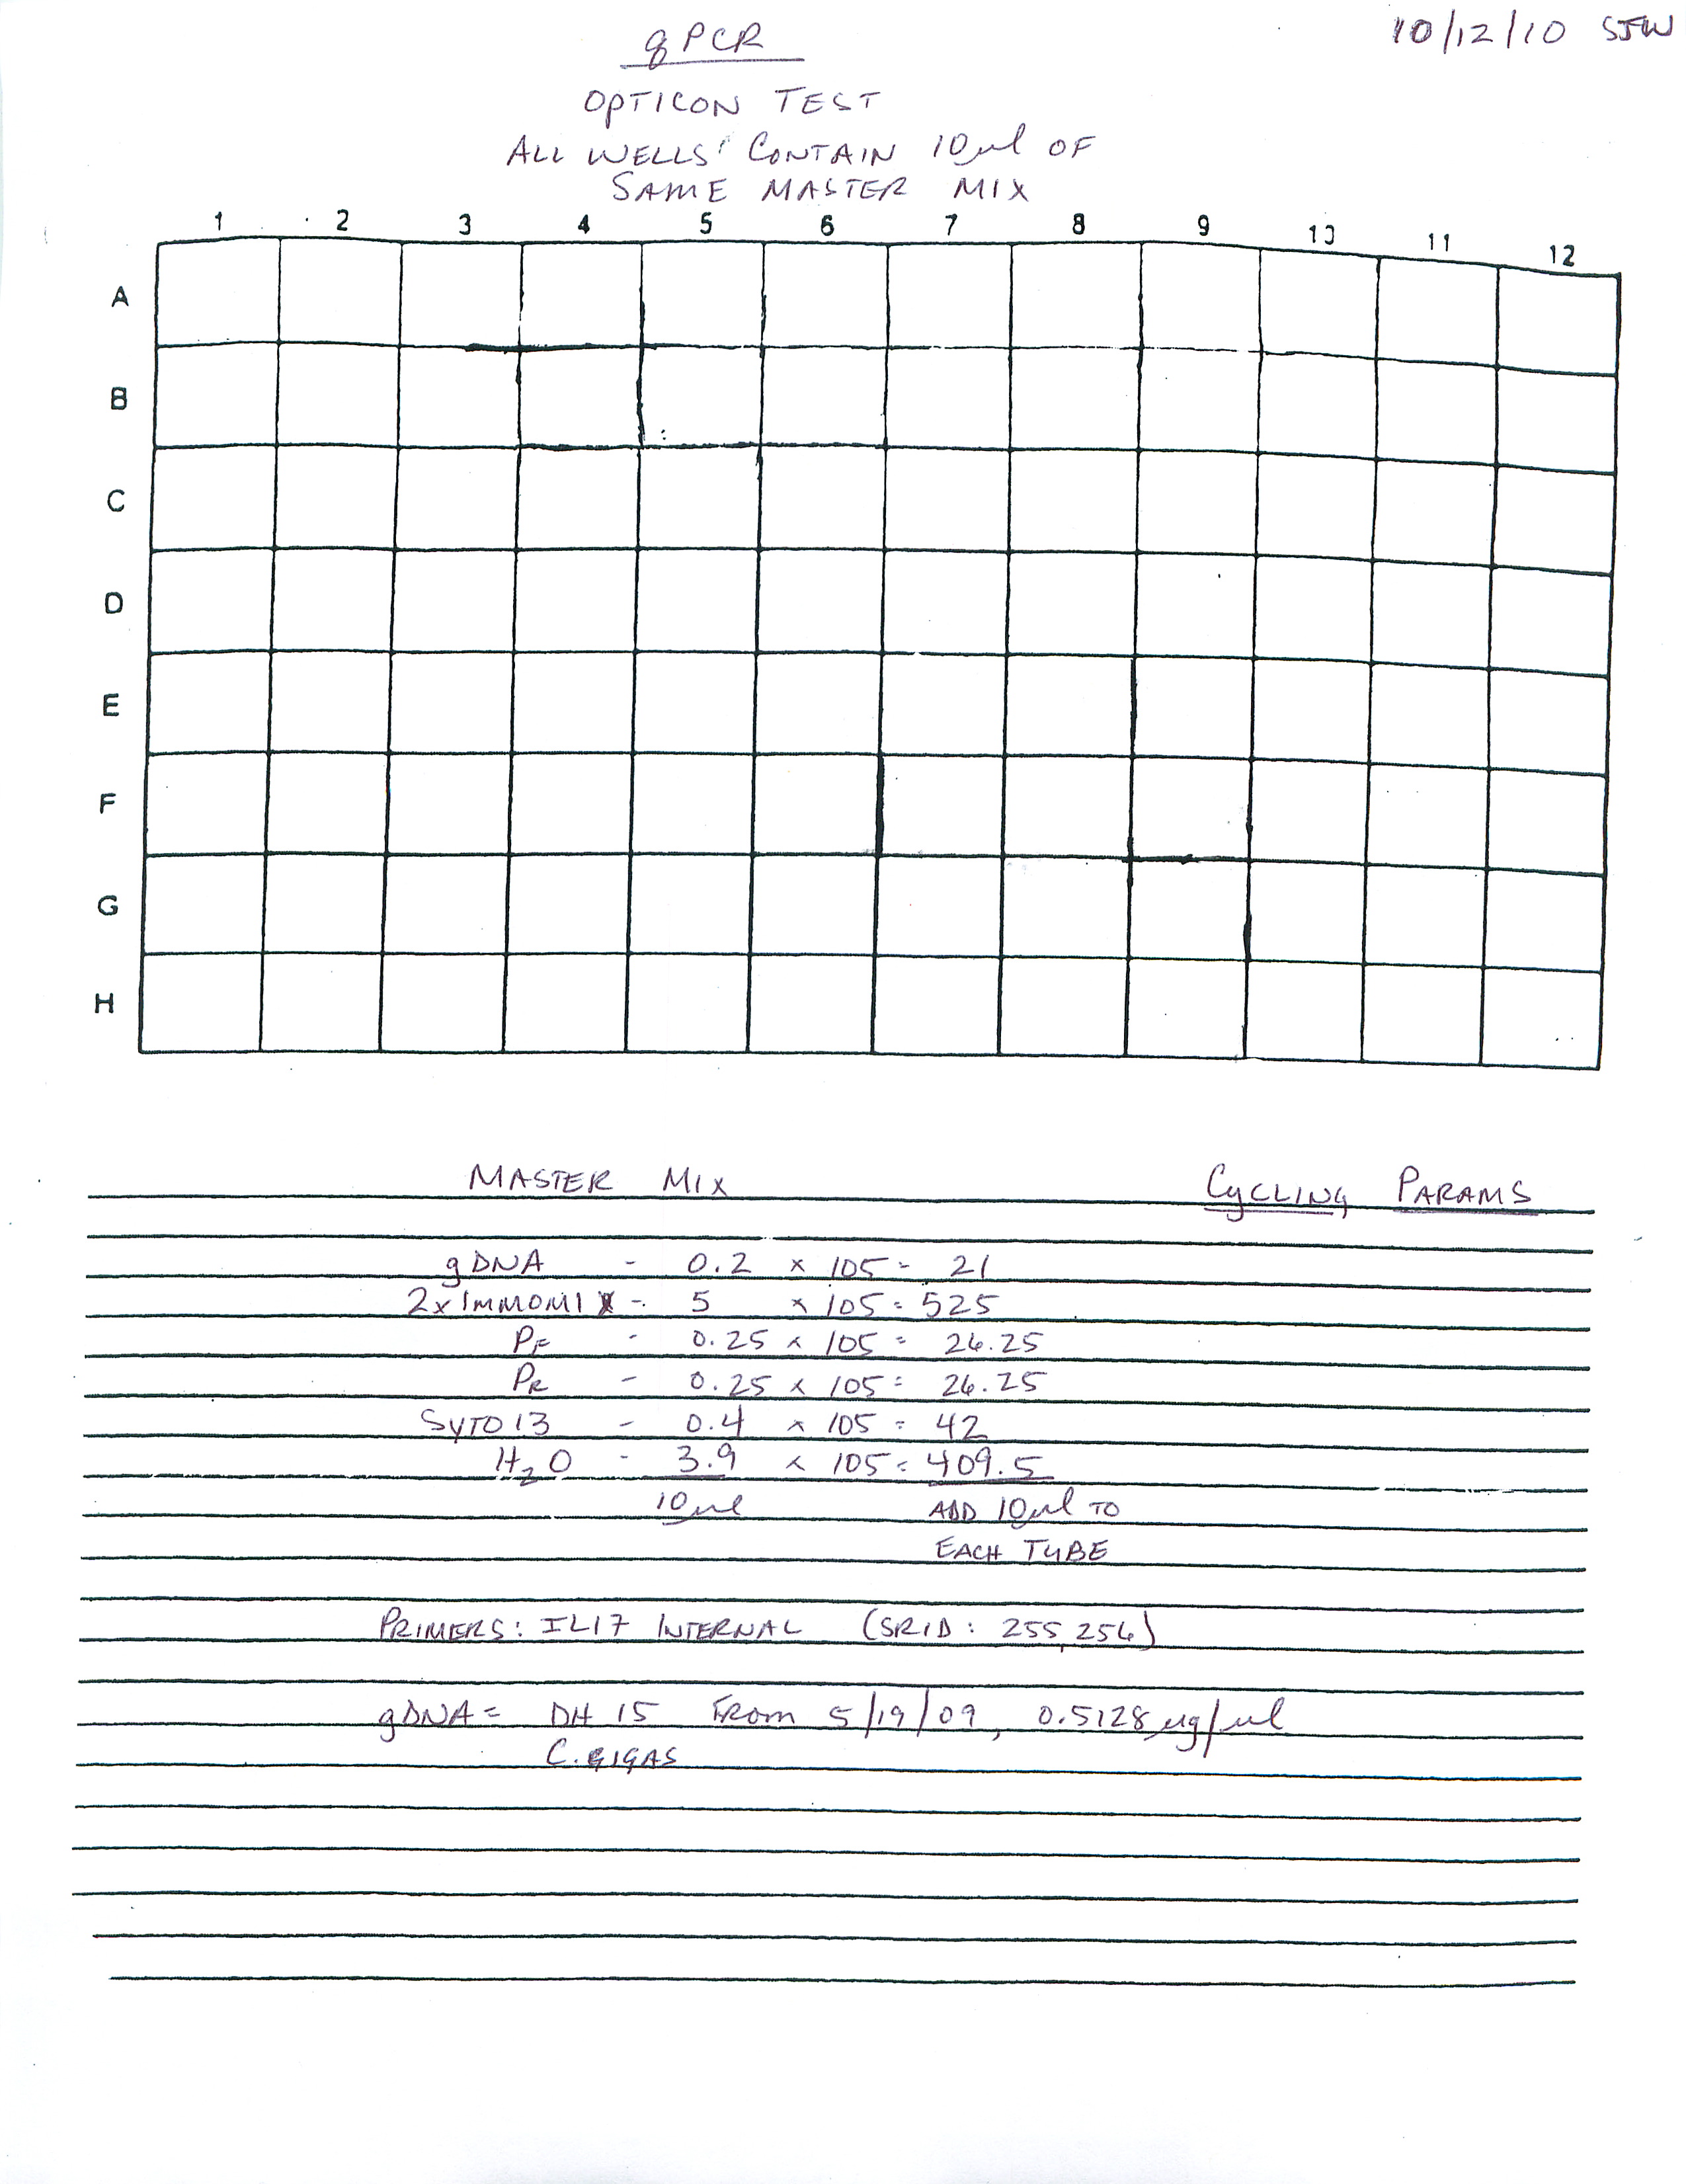 10/12/10 SJW
qPCR
OPTICON TEST
ALL WELLS CONTAIN 10ul OF
SAME MASTER MIX
1 2 3 4 5 6 7 8 9 10 11 12
A
B
C
D
E
F
G
H
MASTER MIX
CYCLING PARAMS
gDNA - 0.2 x 105 = 21
2x IMMOMIX - 5 x 105 = 525
PF - 0.25 x 105 = 26.25
PR - 0.25 x 105 = 26.25
SYTO 13 - 0.4 x 105 = 42
H2O - 3.9 x 105 = 409.5
10ul ADD 10ul TO
EACH TUBE
PRIMERS: IL17 INTERNAL (SRID: 255, 256)
gDNA = DH 15 FROM 5/19/09, 0.5128ug/ul
C. GIGAS